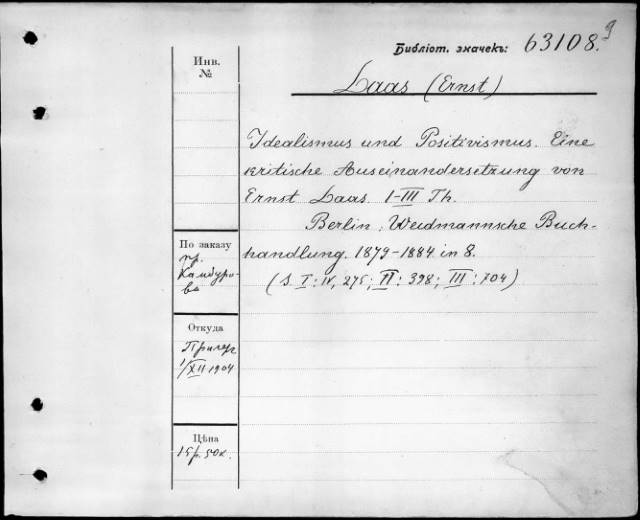 Библіот. значекъ: 63108.9
Инв.
№
Laas (Ernst)
Idealismus und Positivismus. Eine
kritische Auseinandersetzung von
Ernst Laas. I-III Th.
Berlin, Weidmannsche Buch-
handlung. 1879-1884. in 8.
(S. I: IV, 275; II: 398; III: 704)
По заказу
пр.
Откуда
1/XII 1904
Цѣна
15 р. 50 к.